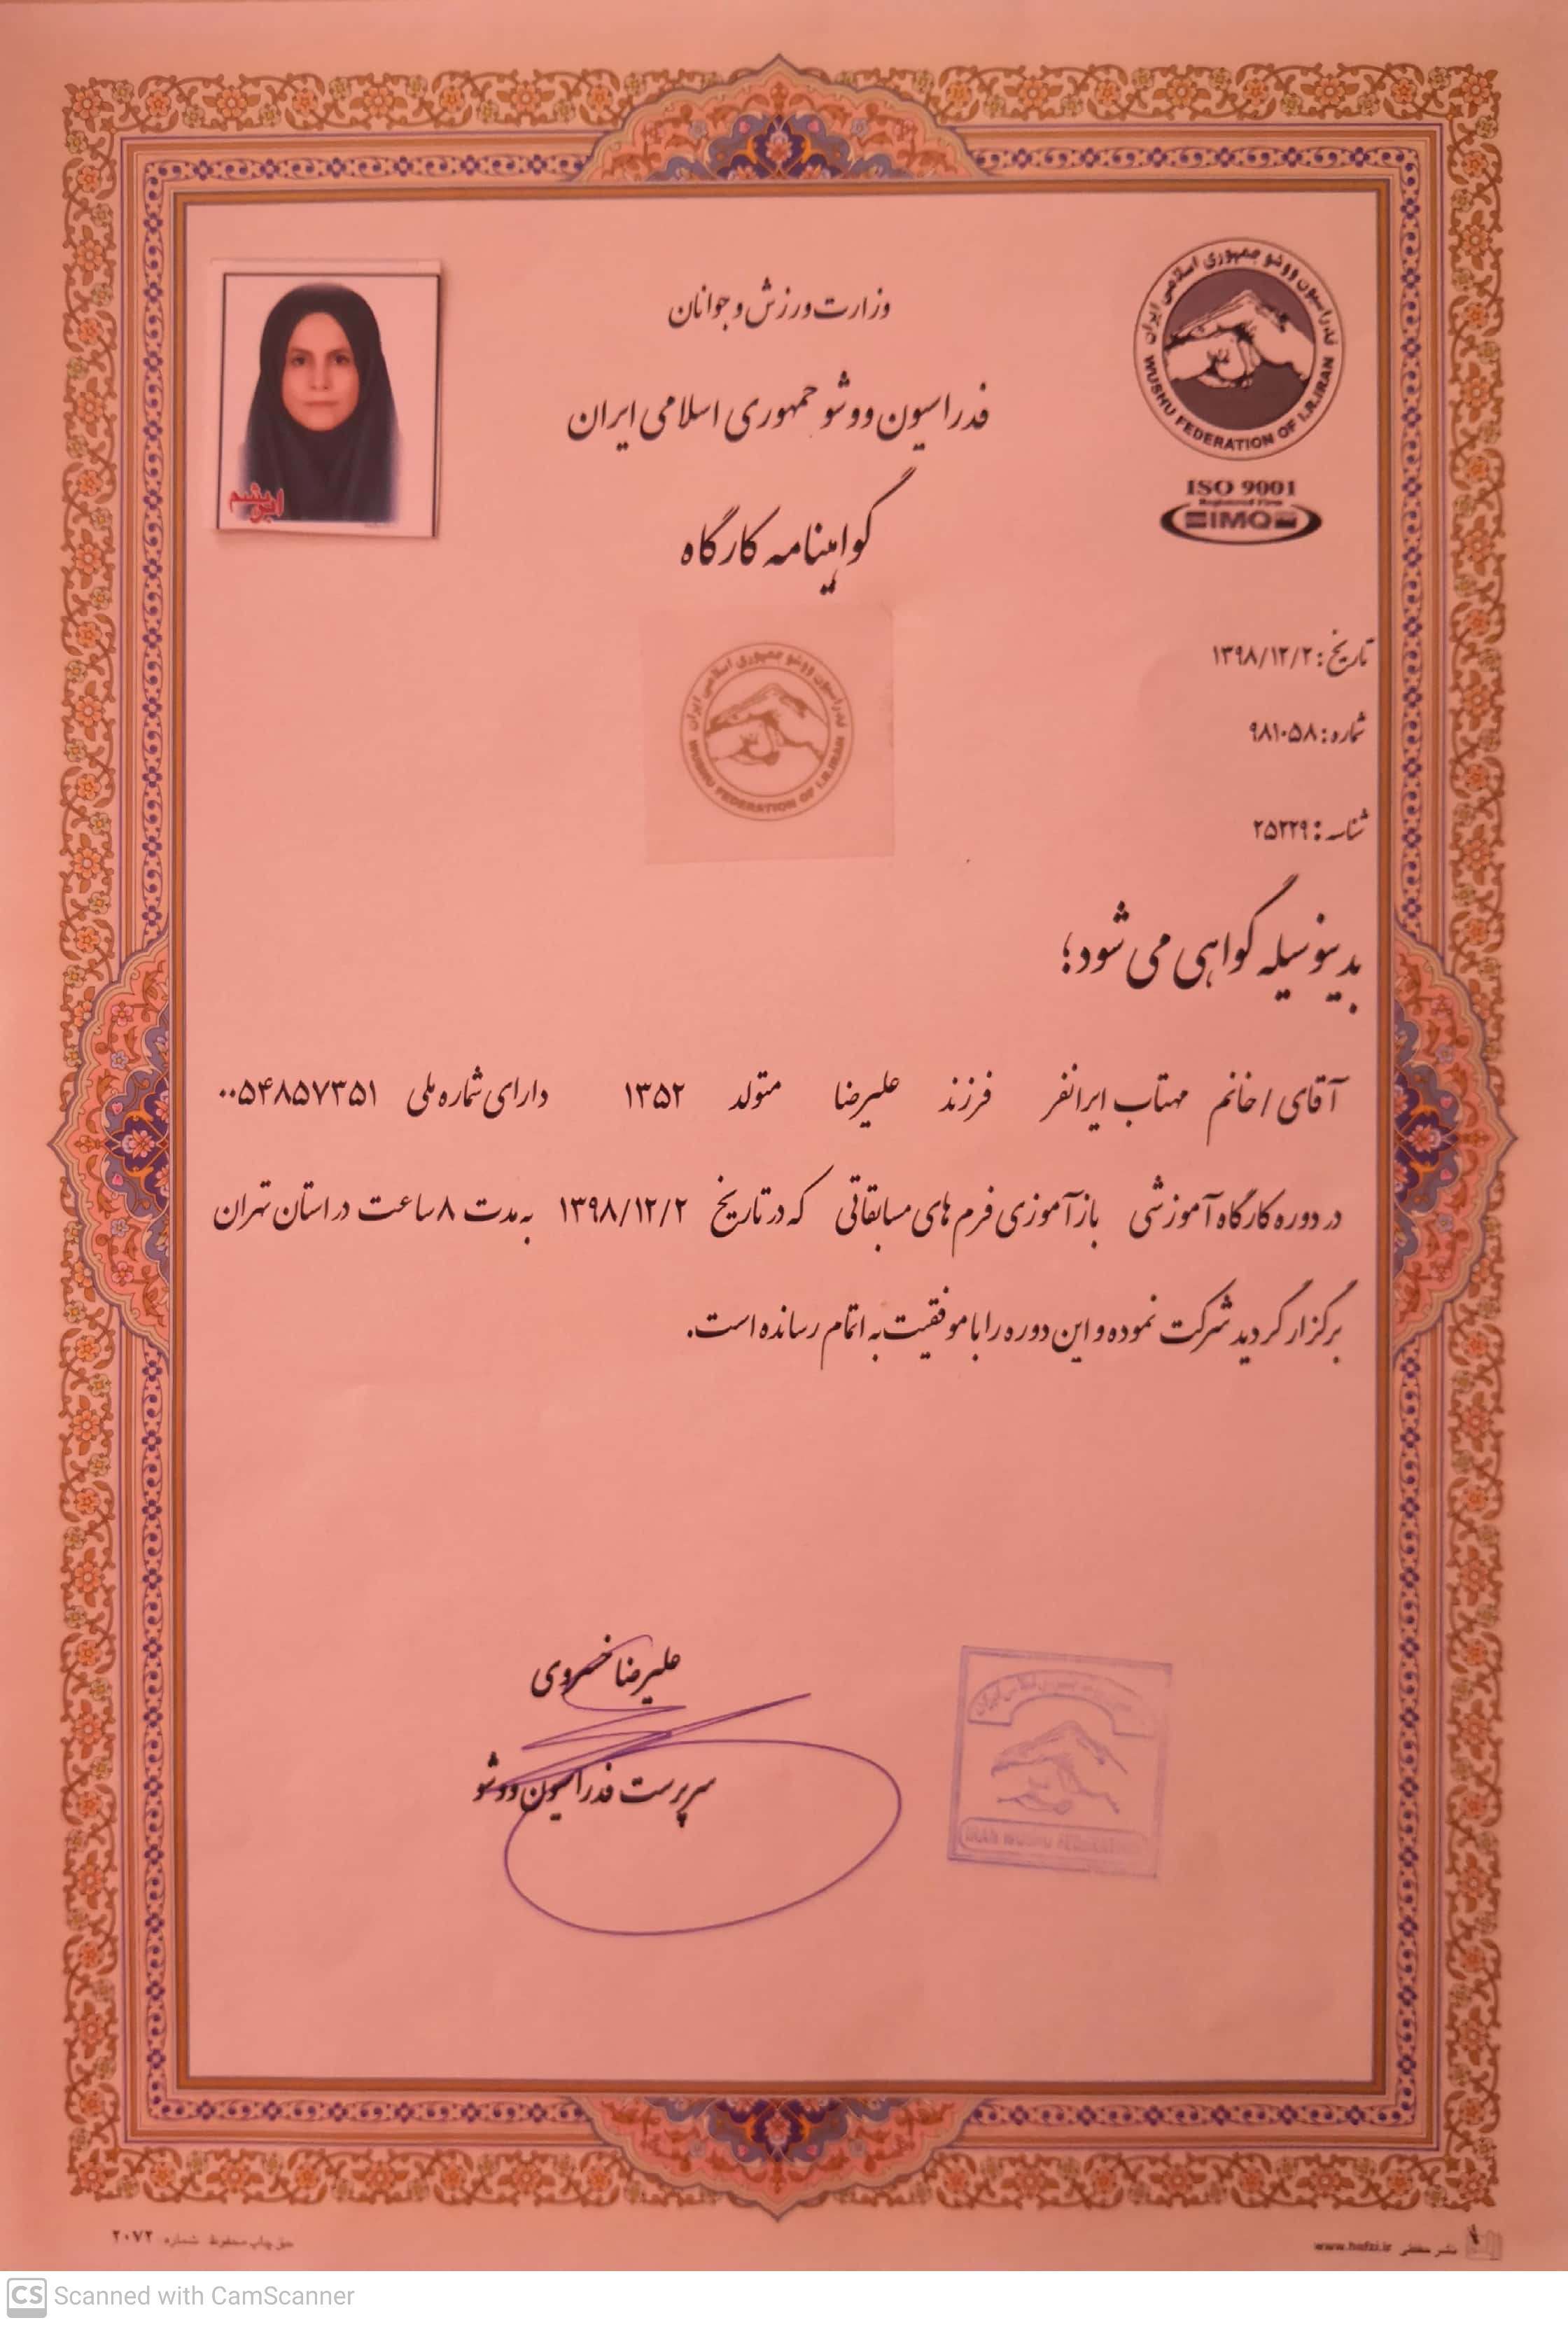 وزارت ورزش و جوانان
فدراسیون ووشو جمهوری اسلامی ایران
گواهینامه کارگاه
فدراسیون ووشو جمهوری اسلامی ایران
WUSHU FEDERATION OF I.R.IRAN
ISO 9001
Registered Firm
IMQ
ابریشم
فدراسیون ووشو جمهوری اسلامی ایران
WUSHU FEDERATION OF I.R.IRAN
تاریخ: ۱۳۹۸/۱۲/۲
شماره: ۹۸۱۰۵۸
شناسه: ۲۵۲۲۹
بدینوسیله گواهی می شود؛
آقای / خانم مهتاب ایرانفر فرزند علیرضا متولد ۱۳۵۲ دارای شماره ملی ۰۰۵۴۸۵۷۳۵۱
در دوره کارگاه آموزشی بازآموزی فرم های مسابقاتی که در تاریخ ۱۳۹۸/۱۲/۲ به مدت ۸ ساعت در استان تهران
برگزار گردید شرکت نموده و این دوره را با موفقیت به اتمام رسانده است.
علیرضا خسروی
سرپرست فدراسیون ووشو
IRAN WUSHU FEDERATION
حق چاپ محفوظ شماره ۲۰۷۲
نشر حفظی www.hefzi.ir
CS Scanned with CamScanner